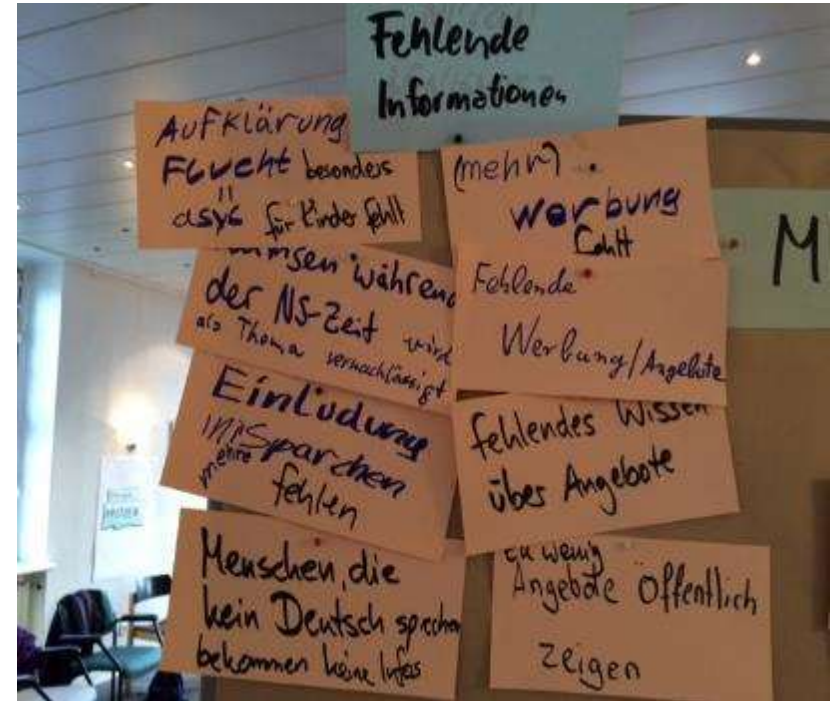 Fehlende
Informationen
Aufklärung
Flucht besonders
asyl für Kinder fehlt
während
der NS-Zeit wird
als Thema vernachlässigt
Einludung
in Sparchen
mehre
fehlen
Menschen, die
kein Deutsch sprechen
bekommen keine Infos
(mehr)
Werbung
fehlt
Fehlende
Werbung/Angebote
fehlendes Wissen
über Angebote
zu wenig
Angebote Öffentlich
zeigen
M